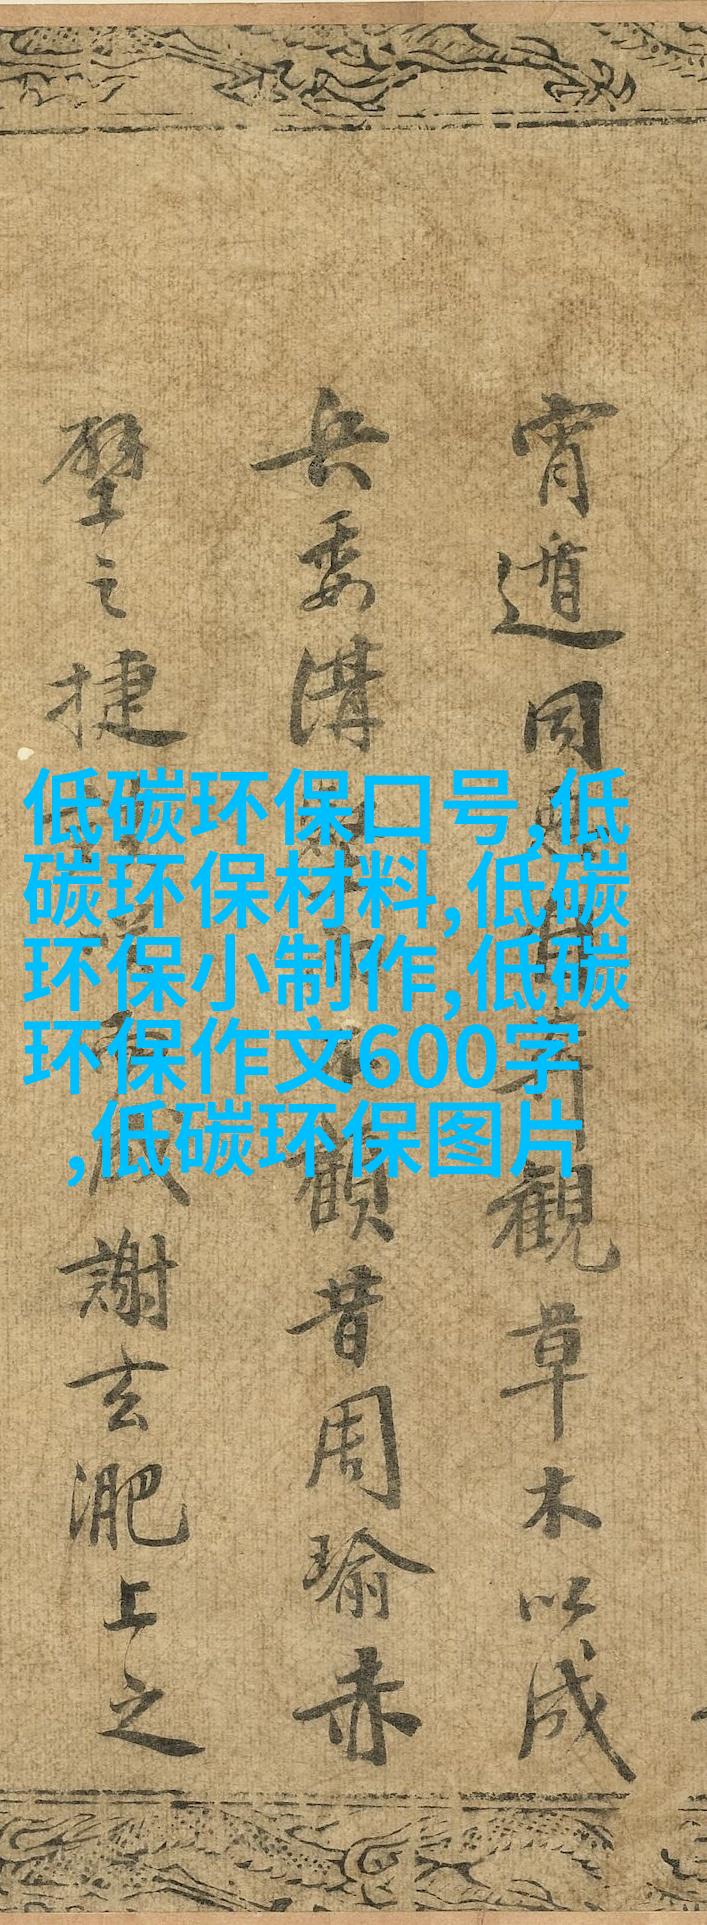 宵遁同觀草木以成
兵委溝顧昔周瑜赤
壁之捷謝玄淝上之
低碳环保口号,低
碳环保材料,低碳
环保小制作,低碳
环保作文600字
,低碳环保图片